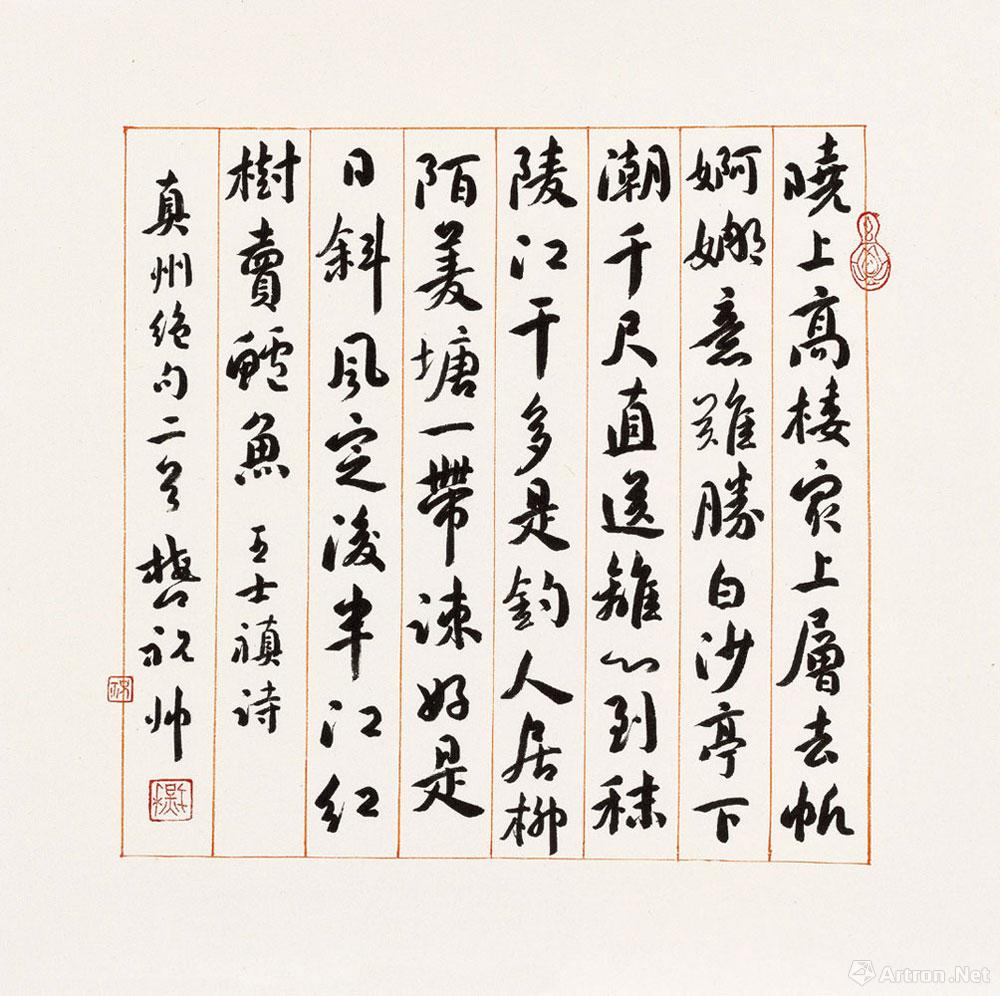 曉上高樓最上層去帆
婀娜意難勝白沙亭下
潮千尺直送離心到秣
陵江干多是釣人居柳
陌菱塘一帶疎好是
日斜風定後半江紅
樹賣鱸魚 王士禛诗
真州绝句二首 梅 祝帅
Artron.Net